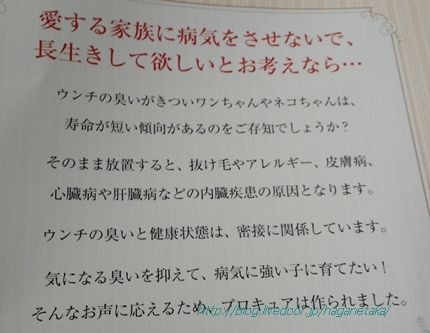 愛する家族に病気をさせないで、
長生きして欲しいとお考えなら…
ウンチの臭いがきついワンちゃんやネコちゃんは、
寿命が短い傾向があるのをご存知でしょうか？
そのまま放置すると、抜け毛やアレルギー、皮膚病、
心臓病や肝臓病などの内臓疾患の原因となります。
ウンチの臭いと健康状態は、密接に関係しています。
気になる臭いを抑えて、病気に強い子に育てたい！
そんなお声に応えるため、プロキュアは作られました。
http://blog.livedoor.jp/haganetaka/